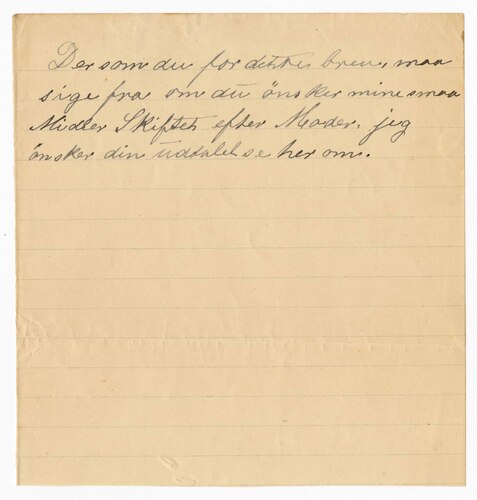 Der som du for dette brev, maa
sige fra om du önsker mine smaa
Midler Skiftet efter Moder, jeg
önsker din udtalelse her om.